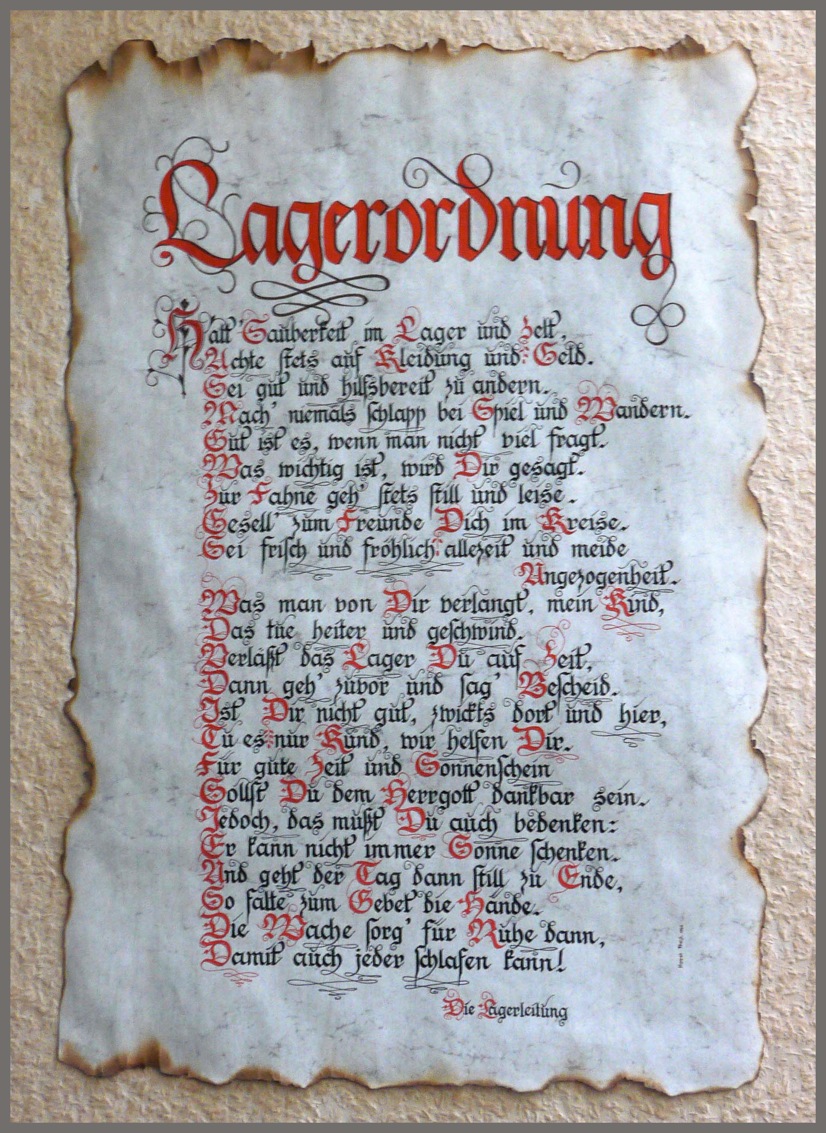 Lagerordnung
Halt' Sauberkeit im Lager und Zelt,
Achte stets auf Kleidung und Geld.
Sei gut und hilfsbereit zu andern.
Mach' niemals schlapp bei Spiel und Wandern.
Gut ist es, wenn man nicht viel fragt.
Was wichtig ist, wird Dir gesagt.
Zur Fahne geh' stets still und leise.
Gesell' zum Freunde Dich im Kreise.
Sei frisch und fröhlich allezeit und meide
Ungezogenheit.
Was man von Dir verlangt, mein Kind,
Das tue heiter und geschwind.
Verläßt das Lager Du auf Zeit,
Dann geh' zuvor und sag' Bescheid.
Ist Dir nicht gut, zwickts dort und hier,
Tu es nur Kund, wir helfen Dir.
Für gute Zeit und Sonnenschein
Sollst Du dem Herrgott dankbar sein.
Jedoch, das mußt Du auch bedenken:
Er kann nicht immer Sonne schenken.
Und geht der Tag dann still zu Ende,
So falte zum Gebet die Hände.
Die Wache sorg' für Ruhe dann,
Damit auch jeder schlafen kann!
Die Lagerleitung